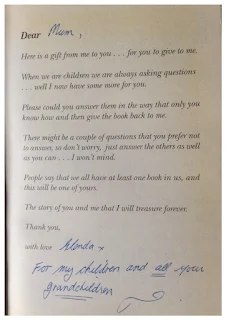 Dear Mum,
Here is a gift from me to you . . . for you to give to me.
When we are children we are always asking questions
. . . well I now have some more for you.
Please could you answer them in the way that only you
know how and then give the book back to me.
There might be a couple of questions that you prefer not
to answer, so don't worry, just answer the others as well
as you can . . . I won't mind.
People say that we all have at least one book in us, and
this will be one of yours.
The story of you and me that I will treasure forever.
Thank you,
with love Glenda x
For my children and all your
grandchildren